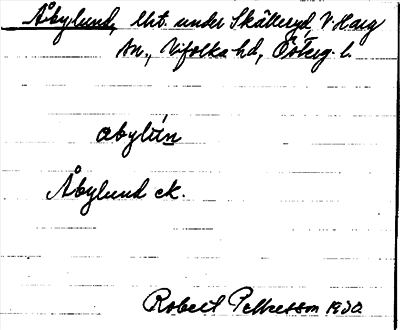 Åbylund, lht. under Skälleryd, V. Harg
sn., Vifolka hd, Österg. l.
abylún
Åbylund ek.
Robert Petersson 1930.